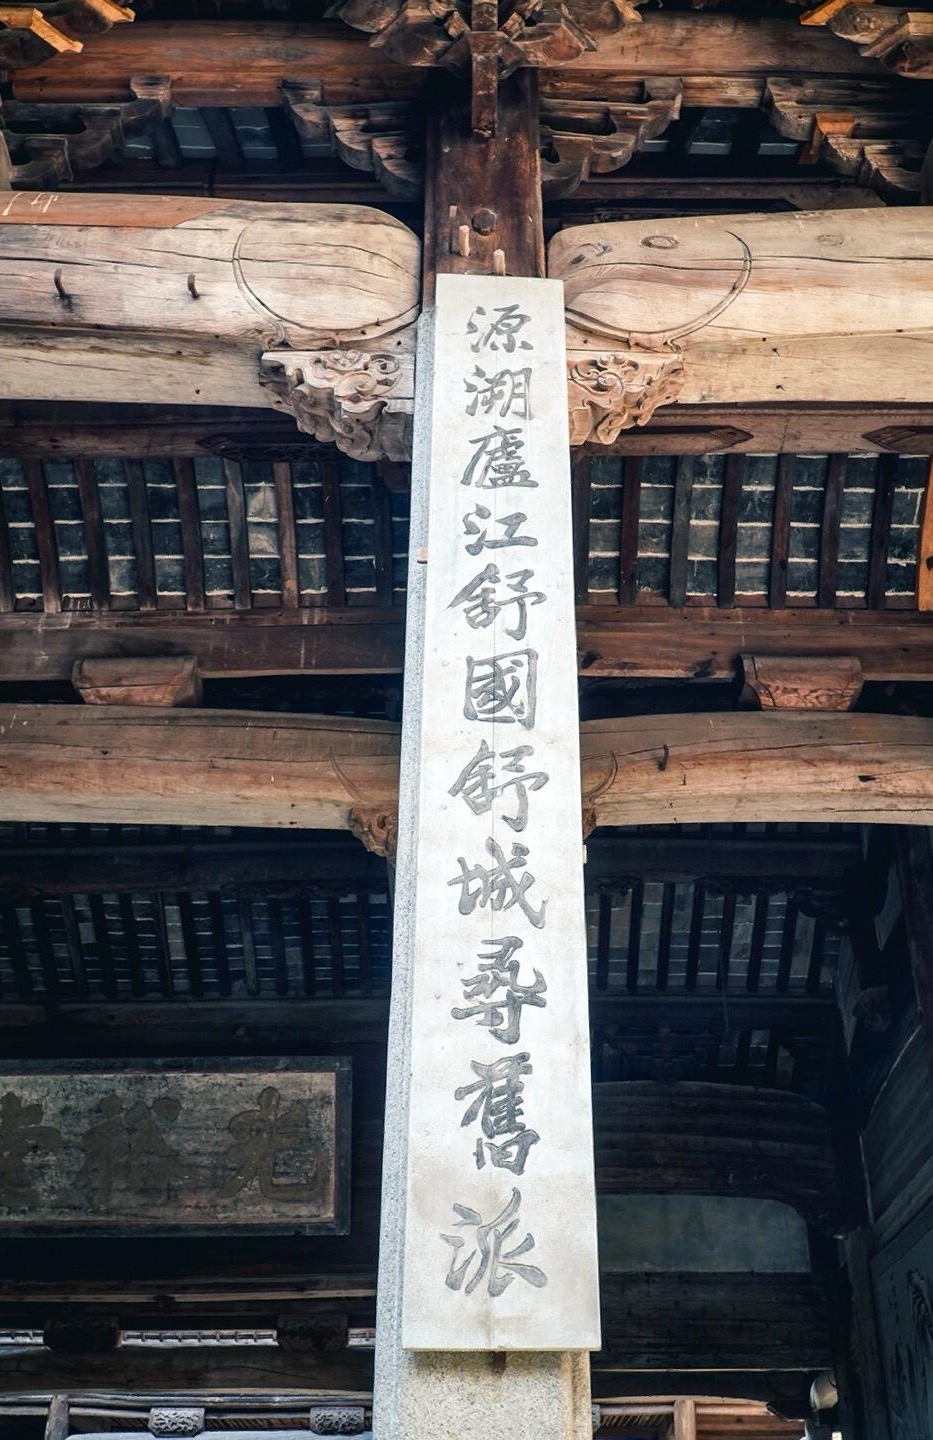 源溯廬江舒國舒城尋舊派
光裕堂